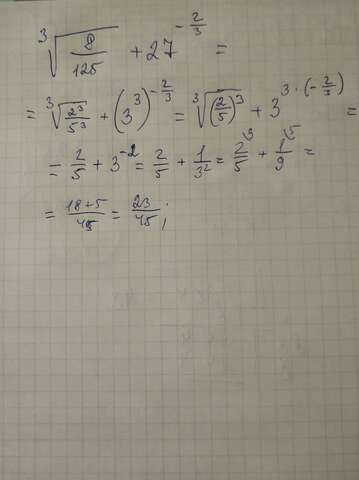 ∛(8/125) + 27^(-2/3) =
= ∛(2³/5³) + (3³)^(-2/3) = ∛((2/5)³) + 3^(3·(-2/3)) =
= 2/5 + 3^(-2) = 2/5 + 1/3² = 2/5 ⁹⁾ + 1/9 ⁵⁾ =
= (18+5)/45 = 23/45 ;